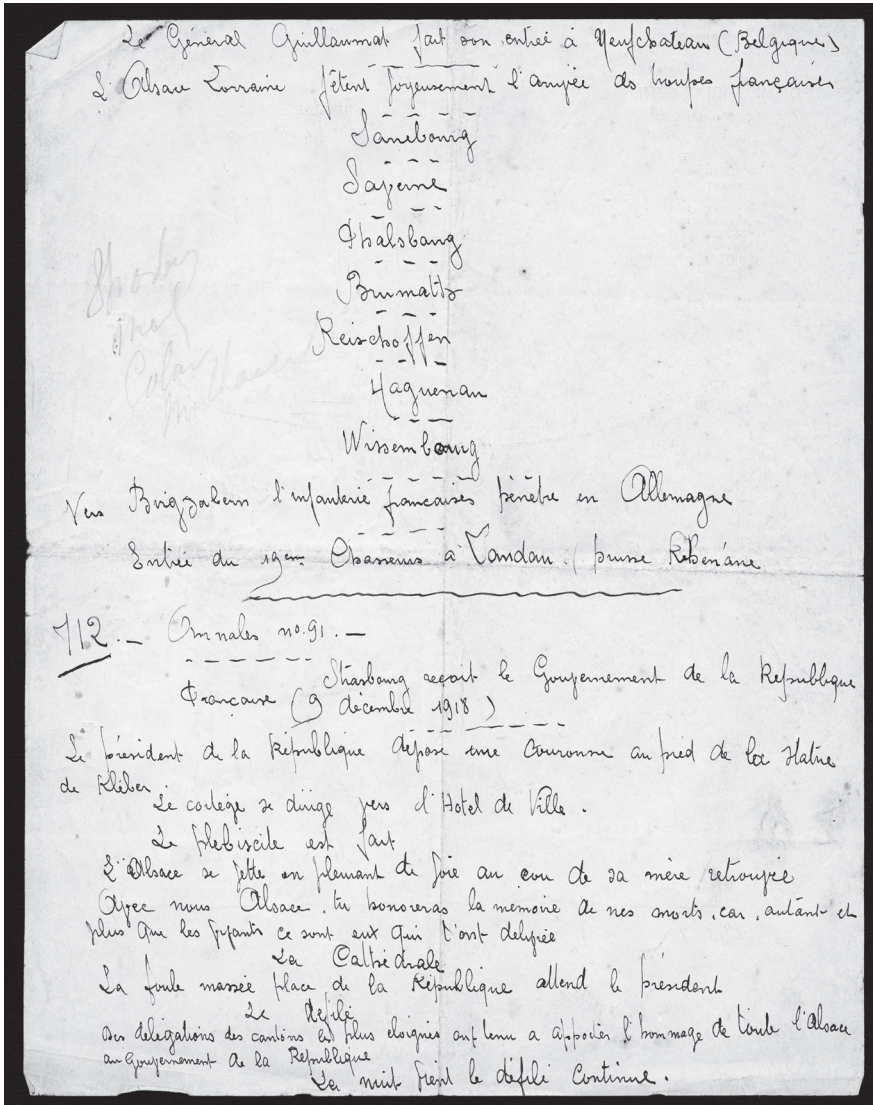 Le Général Guillaumat fait son entrée à Neufchateau (Belgique)
L'Alsace Lorraine fêtent joyeusement l'arrivée des troupes françaises
Sarrebourg
Saverne
Phalsbourg
Brumatts
Reischoffen
Haguenau
Wissembourg
Vers Bergzabern l'infanterie françaises pénètre en Allemagne
Entrée du 19em Chasseurs à Landau. (prusse Rhénane
712. — Annales no. 91. —
Strasbourg reçoit le Gouvernement de la République
Française (9 décembre 1918)
Le président de la République dépose une couronne au pied de la statue
de Kléber.
Le cortège se dirige vers l'Hotel de Ville.
Le plebiscite est fait
L'Alsace se jette en pleurant de joie au cou de sa mère retrouvée
Avec nous Alsace, tu honoreras la mémoire de nos morts, car, autant et
plus que les vivants ce sont eux qui t'ont delivrée
La Cathédrale
La foule massée place de la République attend le président
Le defilé
Des délégations des cantons les plus eloignés ont tenu a apporter l'hommage de toute l'Alsace
au Gouvernement de la République
La nuit vient le défilé continue.
Colmar